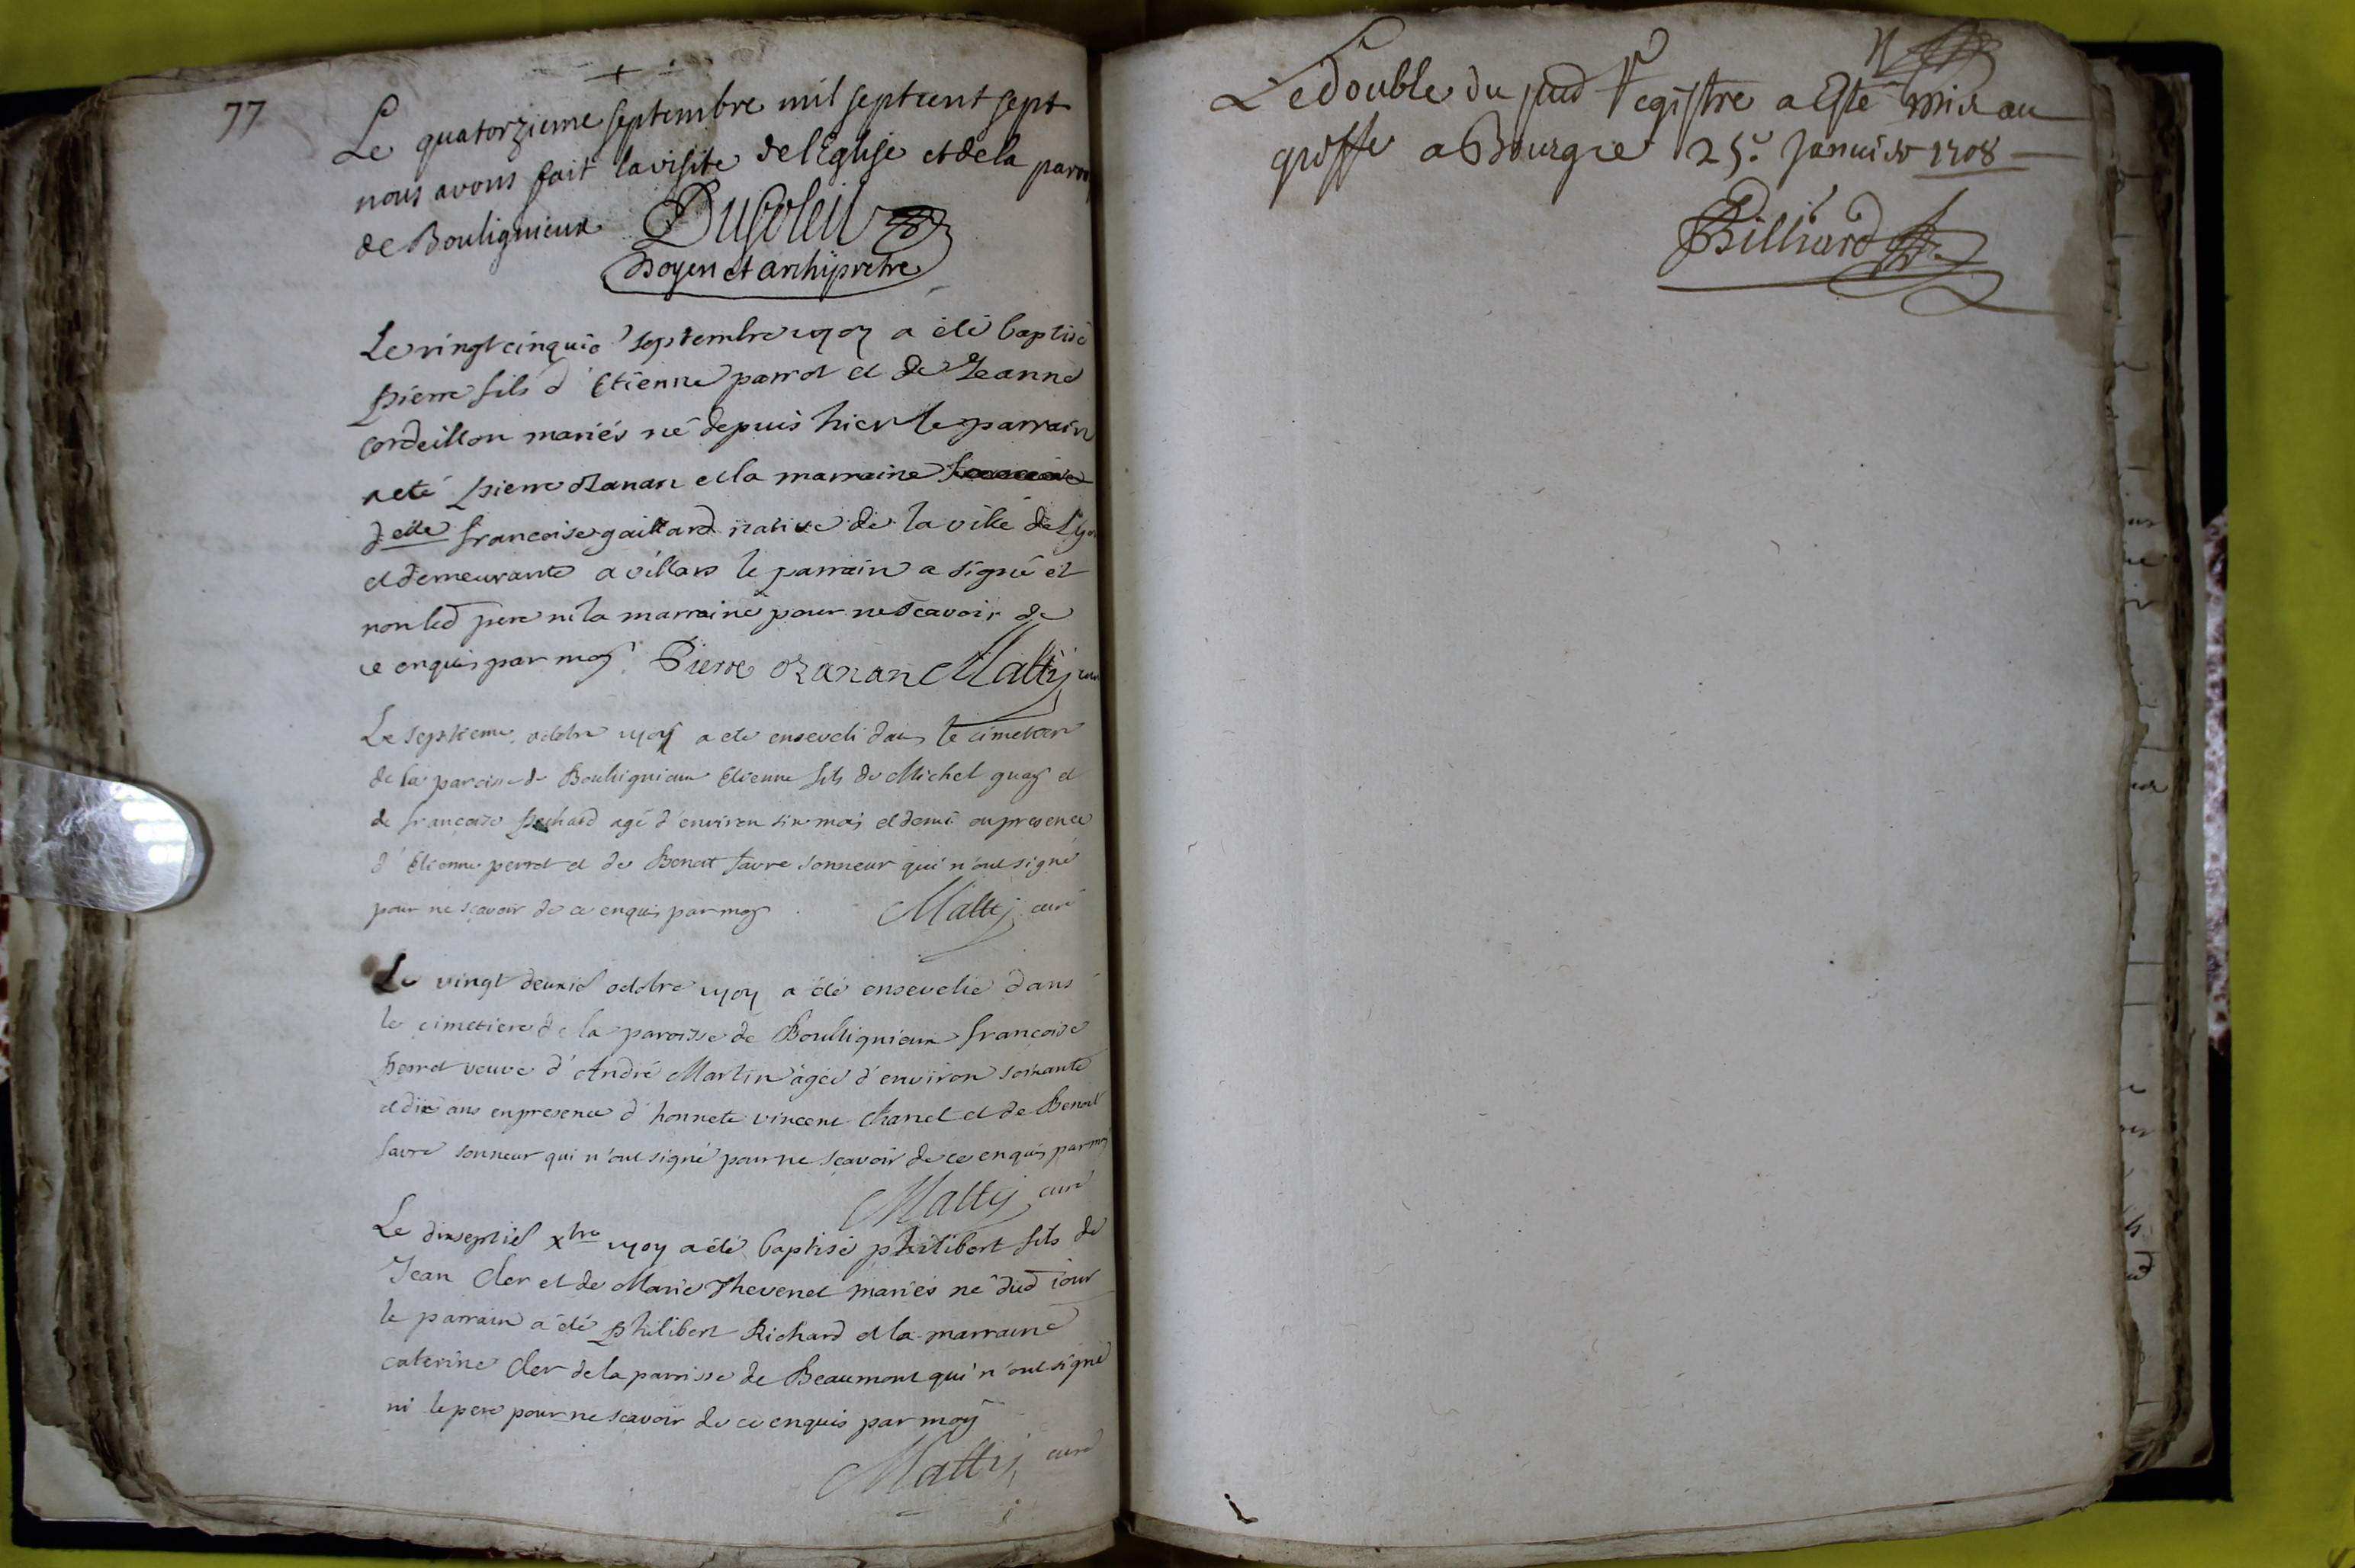 77
Le quatorzieme septembre mil sept cent sept
nous avons fait la visite de l'Eglise et de la paroi
de Bouligneux Dusoleil
Doyen et archipretre
Le vingt cinquie septembre 1707 a été baptisé
pierre fils d'Etienne perrot et de Jeanne
Cordeillon mariés né depuis hier le parrain
a eté pierre Ozanan et la marraine
delle francoise gaillard native de la ville de Lyon
et demeurante a villars le parrain a signé et
non led pere ni la marraine pour ne scavoir de
ce enquis par moy Pierre Ozanan Matty curé
Le septieme octobre 1707 a eté enseveli dans le cimetiere
de la paroisse de Boullignieux Etienne fils de Michel guay et
de francoise agé d'environ six mois et demi en presence
d'Etienne perrot et de Benoit favre sonneur qui n'ont signé
pour ne sçavoir de ce enquis par moy Matty curé
Le vingt deuxie octobre 1707 a été ensevelie dans
le cimetiere de la paroisse de Boullignieux francoise
perrot veuve d'André Martin agée d'environ soixante
et dix ans en presence d'honnete vincent Chanel et de Benoit
favre sonneur qui n'ont signé pour ne sçavoir de ce enquis par moy
Matty curé
Le dixseptie xbre 1707 a été baptisé philibert fils de
Jean Cler et de Marie Thevenet mariés né dud iour
le parrain a été philibert Richard et la marraine
caterine Cler de la paroisse de Beaumont qui n'ont signé
ni le pere pour ne scavoir de ce enquis par moy
Matty curé
Le double du pnt Registre a Esté mis au
greffe a Bourg ce 25e Januier 1708
Billiard